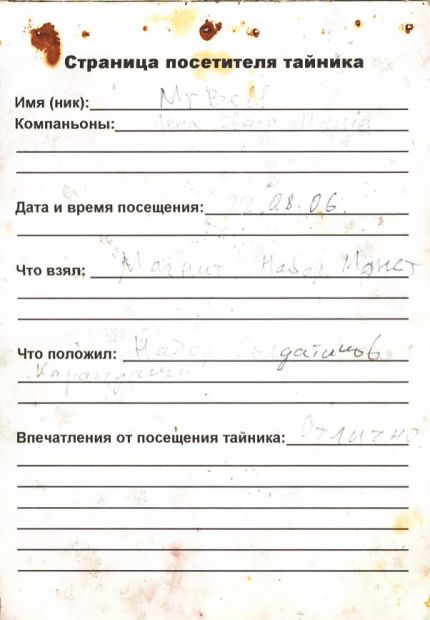 Страница посетителя тайника
Имя (ник): Mr Bell
Компаньоны: Лена
Дата и время посещения: 22.08.06.
Что взял: Магнит Набор Монет
Что положил: Набор Солдатиков
Карандаши
Впечатления от посещения тайника: Отлично